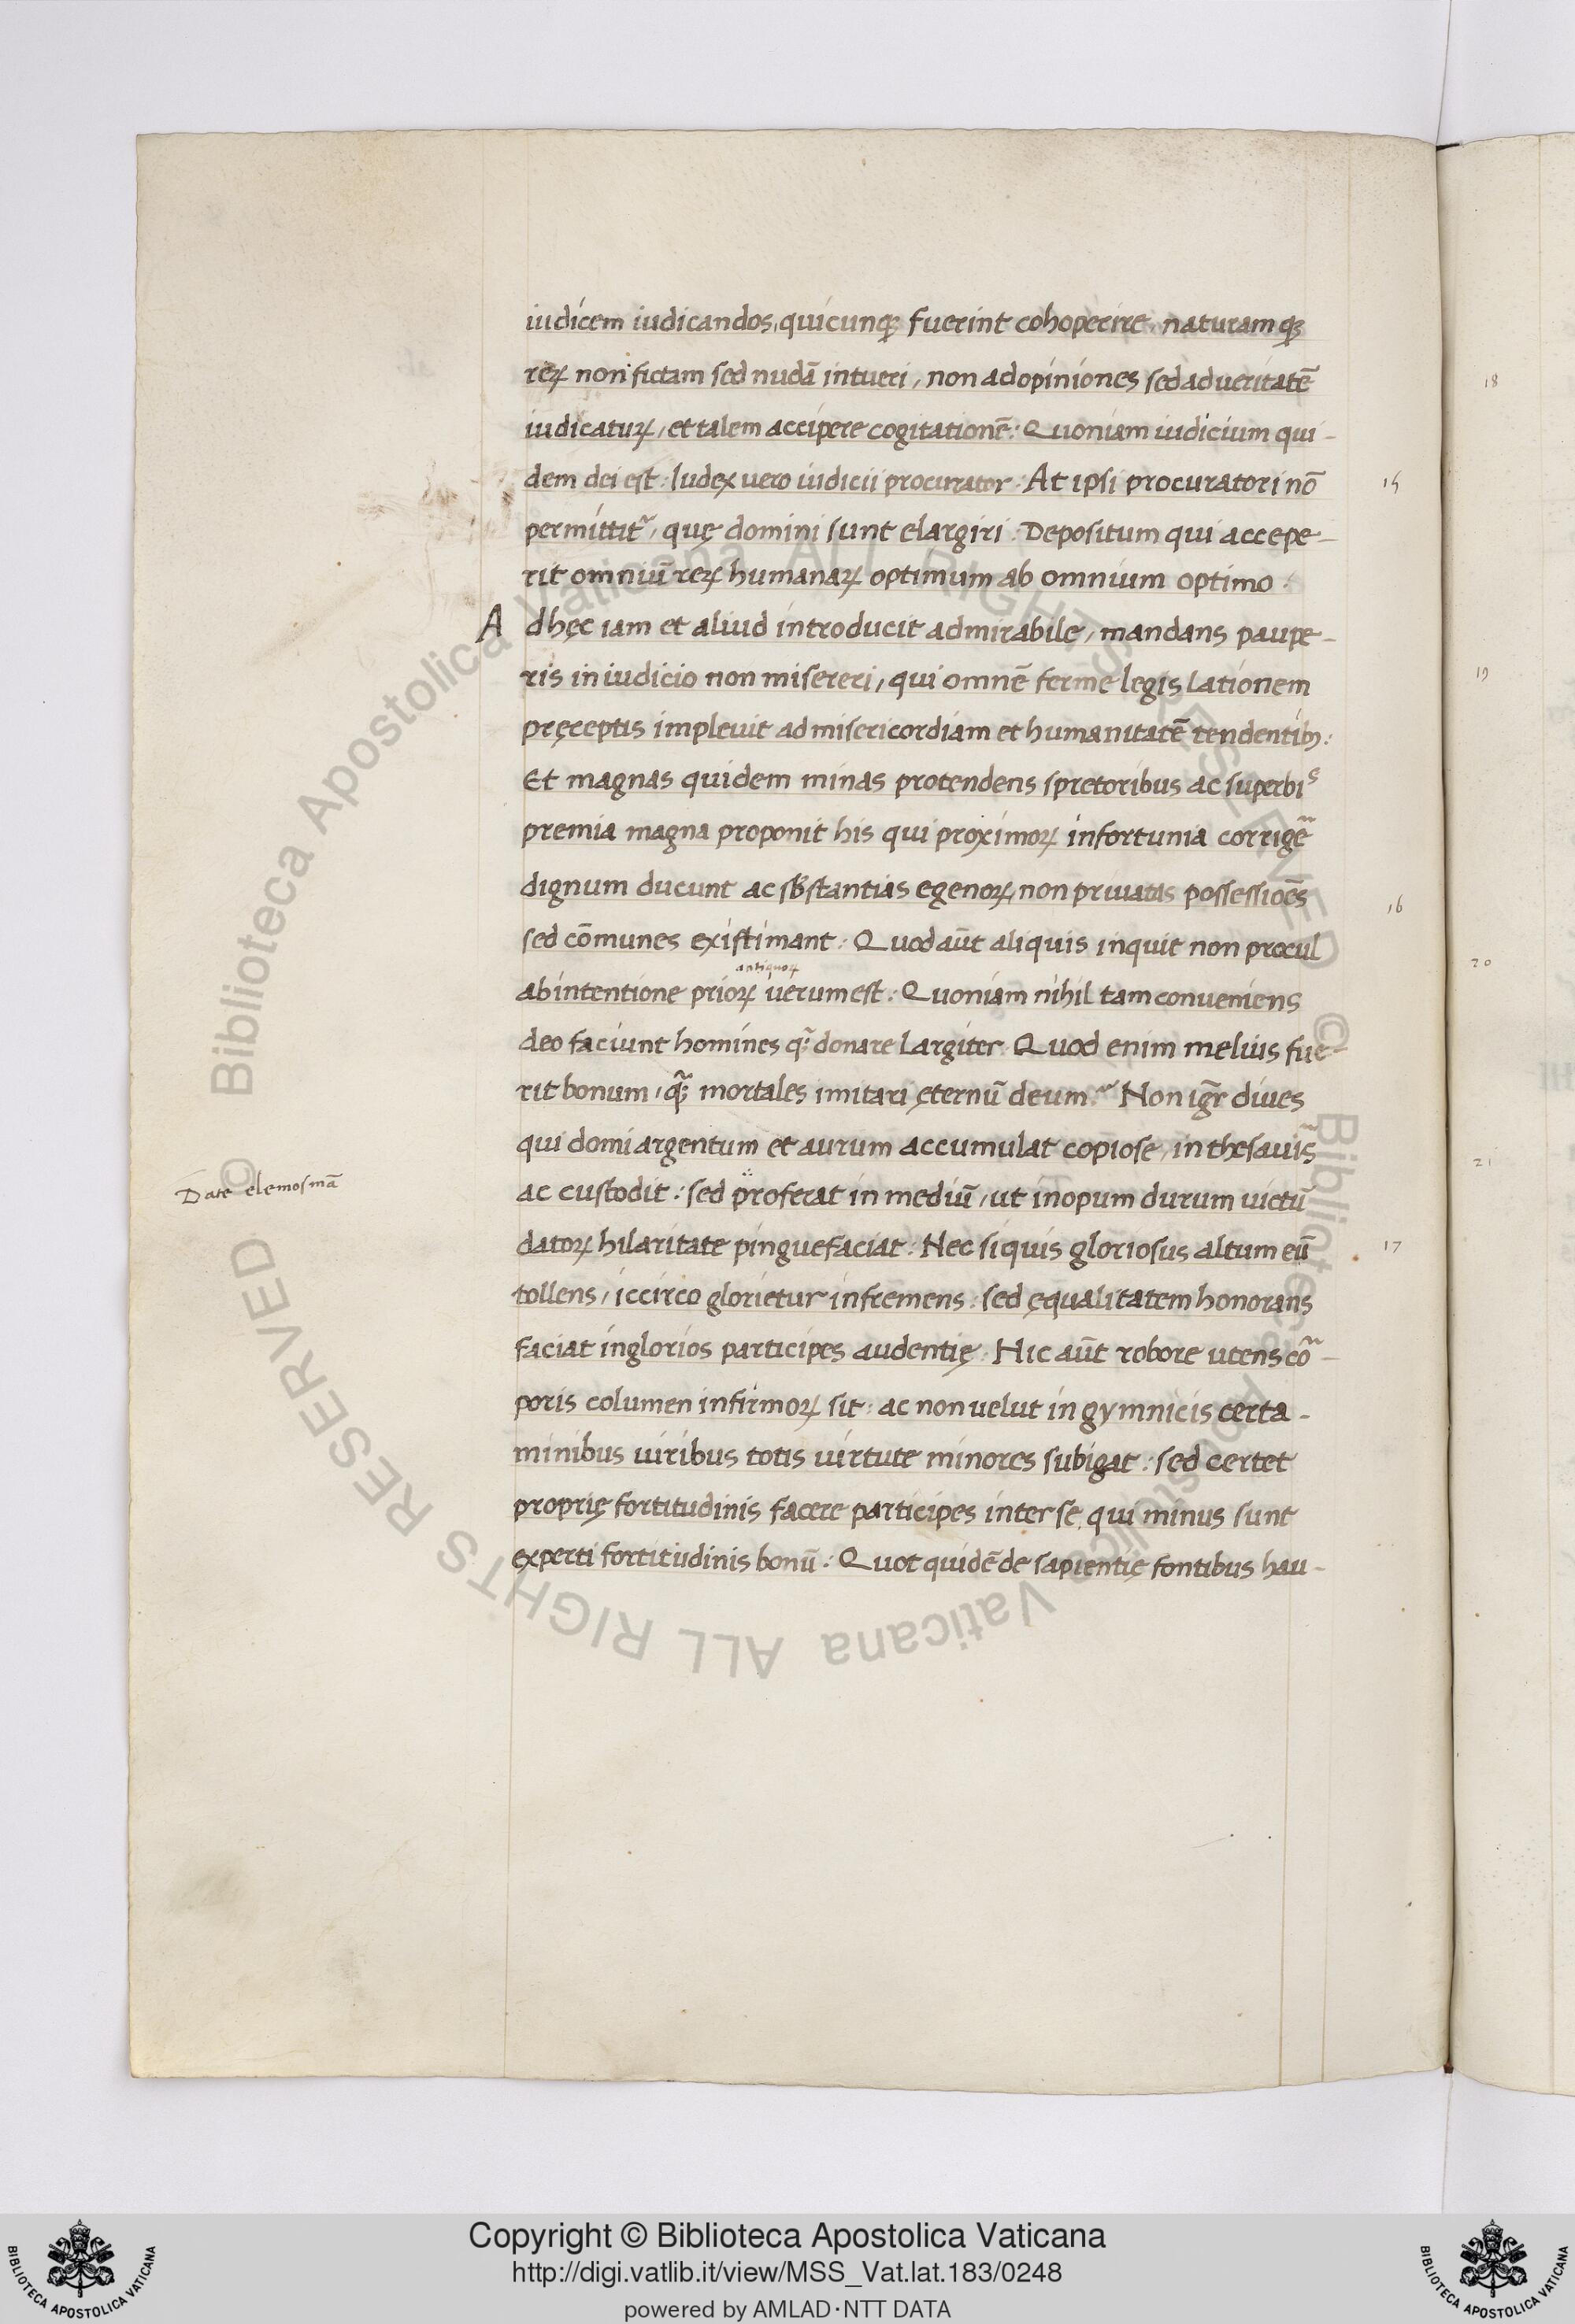 iudicem iudicandos, quicunqꝫ fuerint cohoperire, naturamqꝫ
reꝝ non fictam sed nudā intueri, non ad opiniones sed ad ueritatē
iudicatuꝝ, et talem accipere cogitationē: Quoniam iudicium qui-
dem dei est: Iudex uero iudicii procurator. At ipsi procuratori nō
permittit᷑, quę domini sunt elargiri: Depositum qui accepe-
rit omniū reꝝ humanaꝝ optimum ab omnium optimo:
Ad hęc iam et aliud introducit admirabile, mandans paupe-
ris in iudicio non misereri, qui omnē ferme legis lationem
pręceptis impleuit ad misericordiam et humanitatē tendentib;:
Et magnas quidem minas protendens spretoribus ac superbis
premia magna proponit his qui proximoꝝ infortunia corrigē
dignum ducunt ac sb̄stantias egenoꝝ, non priuatas possessiōes
sed cōmunes existimant: Quod aūt aliquis inquit non procul
antiquoꝝ
ab intentione prioꝝ uerum est: Quoniam nihil tam conueniens
deo faciunt homines q̃ donare largiter. Quod enim melius fue-
rit bonum, q̃ꝫ mortales imitari ęternū deum. Non igr̄ diues
qui domi argentum et aurum accumulat copiose, in thesauris
ac custodit: sed proferat in mediū, ut inopum durum uictū
Date elemosinā
datoꝝ hilaritate pinguefaciat: Nec siquis gloriosus altum eū
tollens, iccirco glorietur infremens: sed ęqualitatem honorans
faciat inglorios participes audentię: Hic aūt robore utens cō-
poris columen infirmoꝝ sit: ac non uelut in gymnicis certa-
minibus uiribus totis uirtute minores subigat: sed certet
proprię fortitudinis facere participes inter se, qui minus sunt
experti fortitudinis bonū: Quot quidē de sapientię fontibus hau-
15
16
17
18
19
20
21
© Biblioteca Apostolica Vaticana ALL RIGHTS RESERVED
© Biblioteca Apostolica Vaticana ALL RIGHTS RESERVED
Copyright © Biblioteca Apostolica Vaticana
http://digi.vatlib.it/view/MSS_Vat.lat.183/0248
powered by AMLAD·NTT DATA
BIBLIOTECA APOSTOLICA VATICANA
BIBLIOTECA APOSTOLICA VATICANA